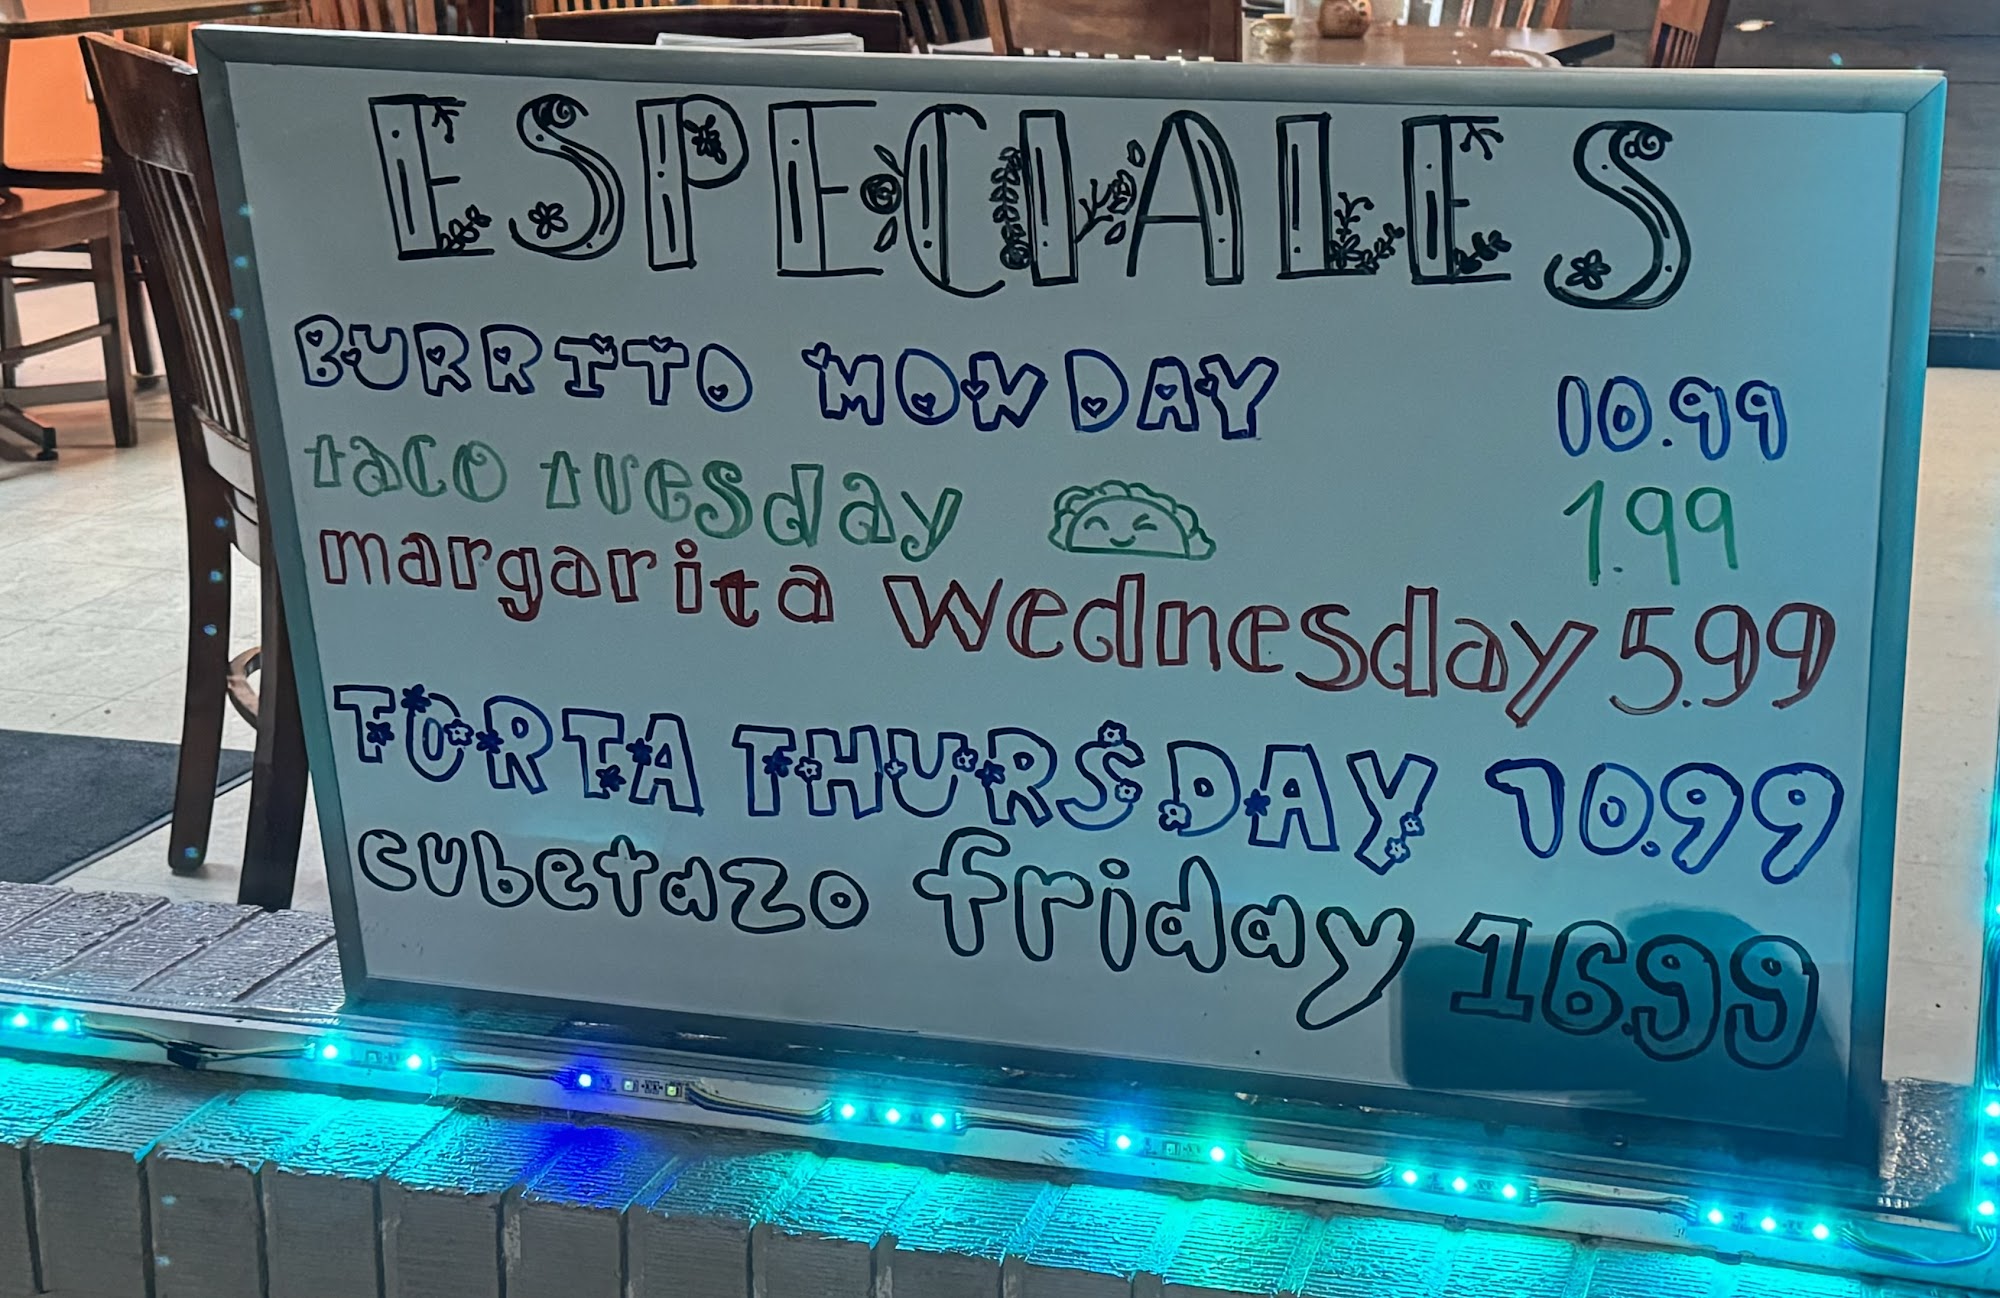 ESPECIALES
BURRITO MONDAY 10.99
taco tuesday 1.99
margarita wednesday 5.99
TORTA THURSDAY 10.99
cubetazo friday 16.99